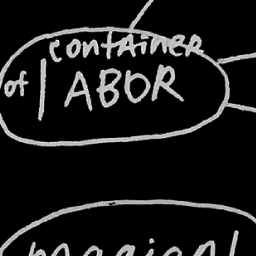 container
of | ABOR
magical